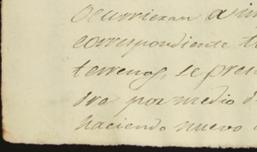 ocurrieran a
correspondiente
terrenos, se pre
dra por medio d
haciendo nuevo